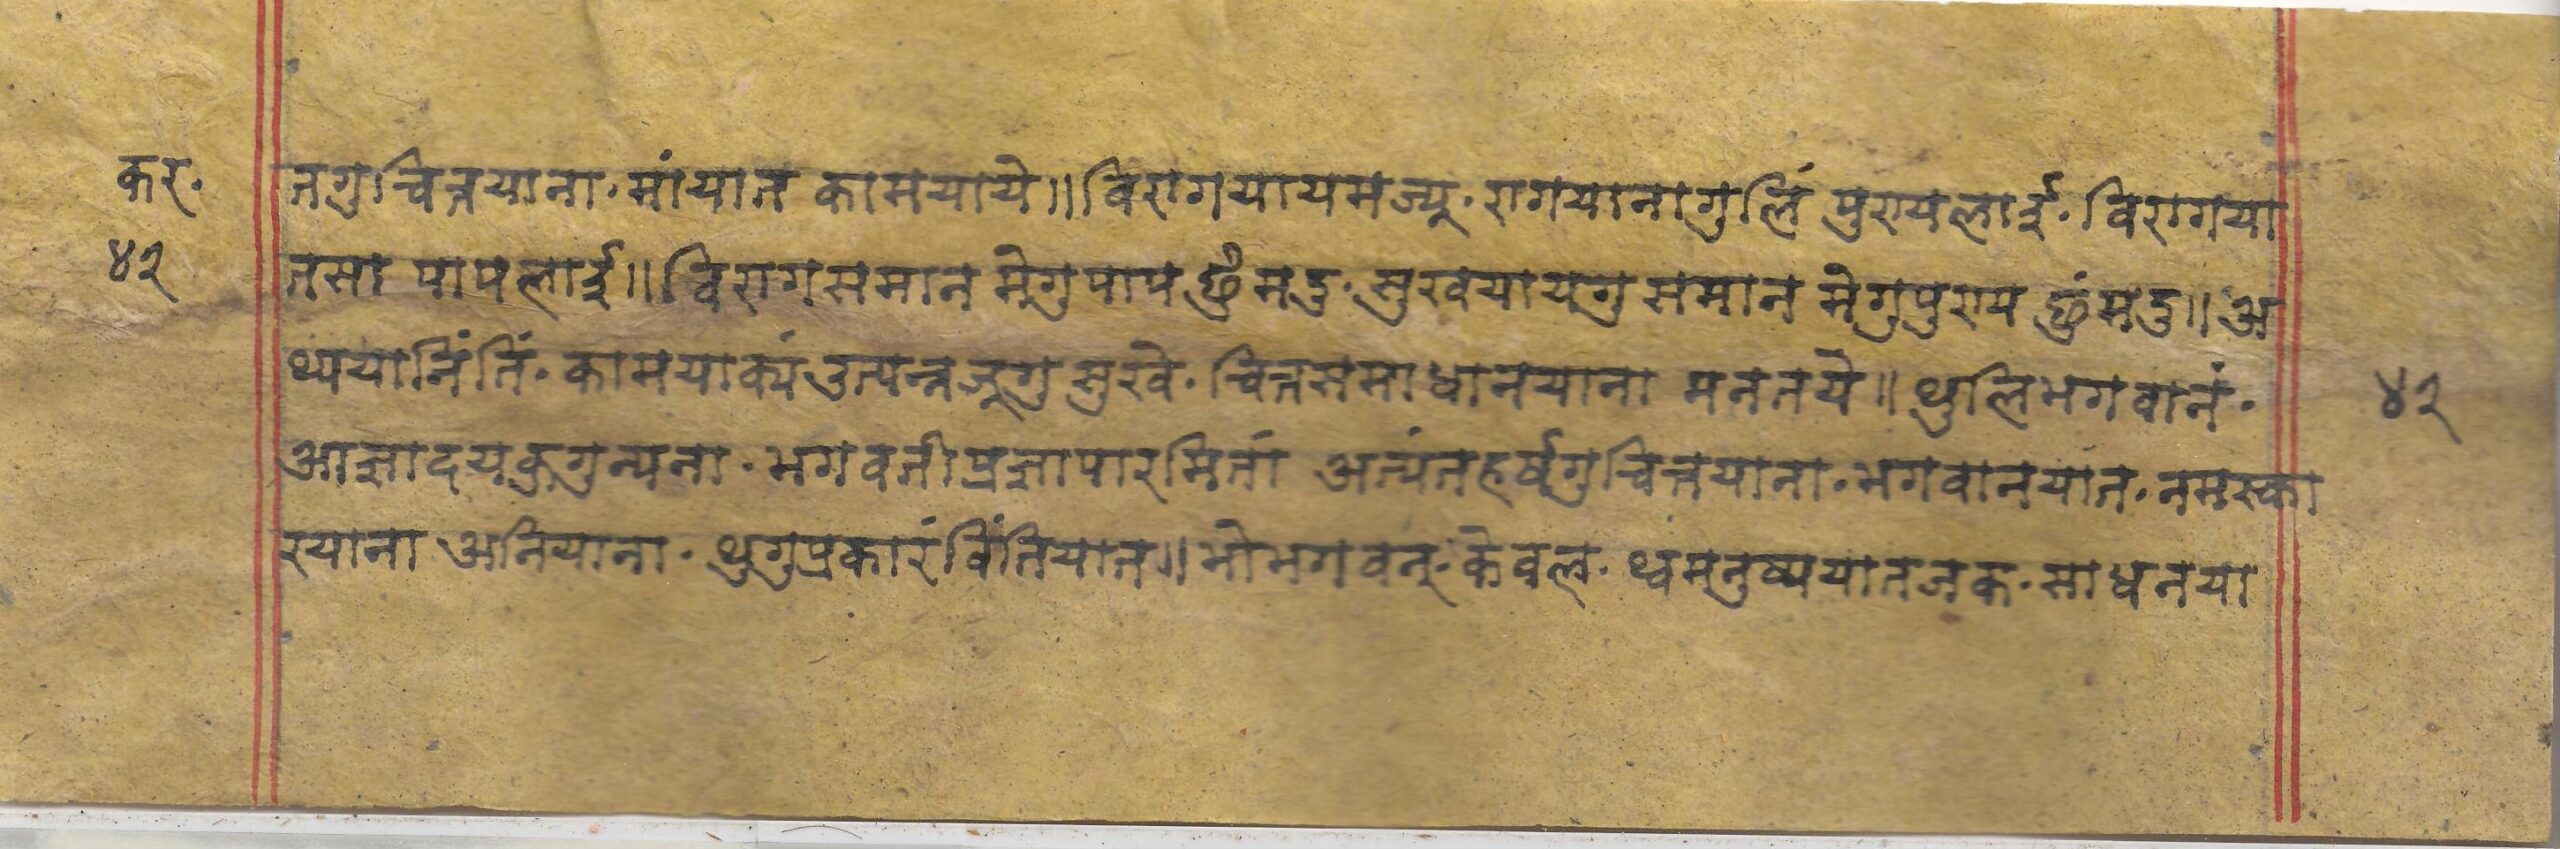 कर. तगुचित्तयाना. मांयात कामयाये॥ विरागयायमज्यू. रागयानागुलिं पुरायलाई. विरागया
४२ तसा पापलाई॥ विरागसमान मेगुपाप छुं मदु. सुखयायगु समान मेगुपुराय छुं मदु॥ अ
थ्ययानिंतिं. कामयाक्यं उत्पन्नजूगु सुखे. चित्तसमाधानयाना मनतये॥ थुलिभगवानं. ४२
आज्ञादयकुगुन्यना. भगवतीप्रज्ञापारमितां अत्यंतहर्षगुचित्तयाना. भगवानयात. नमस्का
रयाना अनियाना. थुगुप्रकारं विंतियात॥ भोभगवन्. केवल. थ्वमनुष्ययातजक. साधनया